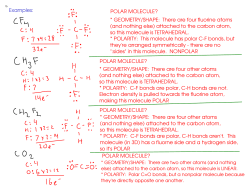 Examples:
CF4
C: 4
F: 7x4=28
32e-
:F:
:F - C - F:
:F:
POLAR MOLECULE?
* GEOMETRY/SHAPE: There are four fluorine atoms
(and nothing else) attached to the carbon atom,
so this molecule is TETRAHEDRAL.
* POLARITY: This molecule has polar C-F bonds, but
they're arranged symmetrically - there are no
'sides' in this molecule. NONPOLAR
CH3F
C: 4
H: 1x3=3
F: 7
14e-
H - C - H
POLAR MOLECULE?
* GEOMETRY/SHAPE: There are four other atoms
(and nothing else) attached to the carbon atom,
so this molecule is TETRAHEDRAL.
* POLARITY: C-F bonds are polar, C-H bonds are not
Electron density is pulled towards the fluorine atom,
making this molecule POLAR
CH2F2
C: 4
H: 1x2=2
F: 7x2=14
20e-
POLAR MOLECULE?
* GEOMETRY/SHAPE: There are four other atoms
(and nothing else) attached to the carbon atom,
so this molecule is TETRAHEDRAL.
* POLARITY: C-F bonds are polar, C-H bonds aren't. The
molecule (in 3D) has a fluorine side and a hydrogen side,
so it's POLAR
CO2
C: 4
O: 6x2=12
16e-
:O=C=O:
POLAR MOLECULE?
* GEOMETRY/SHAPE: There are two other atoms (and nothing
else) attached to the carbon atom, so this molecule is LINEAR.
* POLARITY: Polar C=O bonds, but a nonpolar molecule because
they're directly opposite one another.